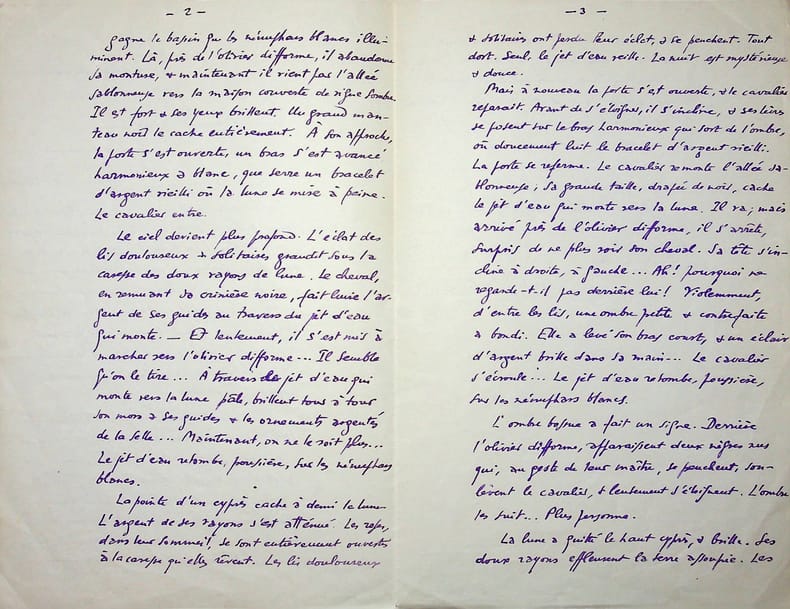 — 2 —
gagne le bassin que les nénuphars blancs illu-
minent. Là, près de l'olivier difforme, il abandonne
sa monture, & maintenant il vient par l'allée
sablonneuse vers la maison couverte de vigne sombre.
Il est fort & ses yeux brillent. Un grand man-
teau noir le cache entièrement. À son approche,
la porte s'est ouverte, un bras s'est avancé
harmonieux & blanc, que serre un bracelet
d'argent vieilli où la lune se mire à peine.
Le cavalier entre.
Le ciel devient plus profond. L'éclat des
lis douloureux & solitaires grandit sous la
caresse des doux rayons de lune. Le cheval,
en remuant sa crinière noire, fait luire l'ar-
gent de ses guides au travers du jet d'eau
qui monte. — Et lentement, il s'est mis à
marcher vers l'olivier difforme... Il semble
qu'on le tire... À travers le jet d'eau qui
monte vers la lune pâle, brillent tour à tour
son mors & ses guides & les ornements argentés
de la selle... Maintenant, on ne le voit plus...
Le jet d'eau retombe, poussière, sur les nénuphars
blancs.
La pointe d'un cyprès cache à demi la lune.
L'argent de ses rayons s'est atténué. Les roses,
dans leur sommeil, se sont entièrement ouvertes
à la caresse qu'elles rêvent. Les lis douloureux
— 3 —
& solitaires ont perdu leur éclat, & se penchent. Tout
dort. Seul, le jet d'eau veille. La nuit est mystérieuse
& douce.
Mais à nouveau la porte s'est ouverte, & le cavalier
reparaît. Avant de s'éloigner, il s'incline, & ses lèvres
se posent sur le bras harmonieux qui sort de l'ombre,
où doucement luit le bracelet d'argent vieilli.
La porte se referme. Le cavalier remonte l'allée sa-
blonneuse ; sa grande taille, drapée de noir, cache
le jet d'eau qui monte vers la lune. Il va ; mais
arrivé près de l'olivier difforme, il s'arrête,
surpris de ne plus voir son cheval. Sa tête s'in-
cline à droite, à gauche... Ah ! pourquoi ne
regarde-t-il pas derrière lui ! Violemment,
d'entre les lis, une ombre petite & contrefaite
a bondi. Elle a levé son bras court, & un éclair
d'argent brille dans sa main... Le cavalier
s'écroule... Le jet d'eau retombe, poussière,
sur les nénuphars blancs.
L'ombre bossue a fait un signe. Derrière
l'olivier difforme, apparaissent deux nègres nus
qui, au geste de leur maître, se penchent, sou-
lèvent le cavalier, & lentement s'éloignent. L'ombre
les suit... Plus personne.
La lune a quitté le haut cyprès, & brille. Ses
doux rayons effleurent la terre assoupie. Les